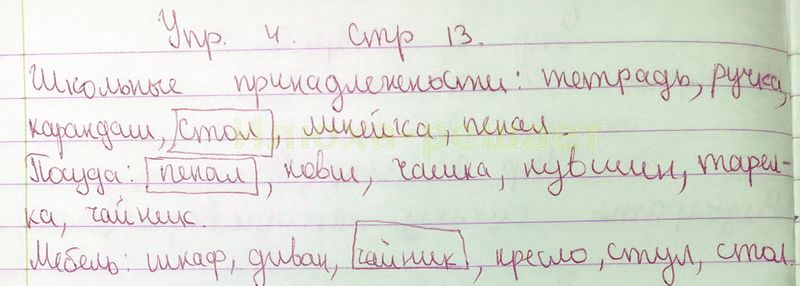 Упр. 4. стр 13.
Школьные принадлежности: тетрадь, ручка,
карандаш, стол, линейка, пенал.
Посуда: пенал, ковш, чашка, кувшин, тарел-
ка, чайник.
Мебель: шкаф, диван, чайник, кресло, стул, стол.